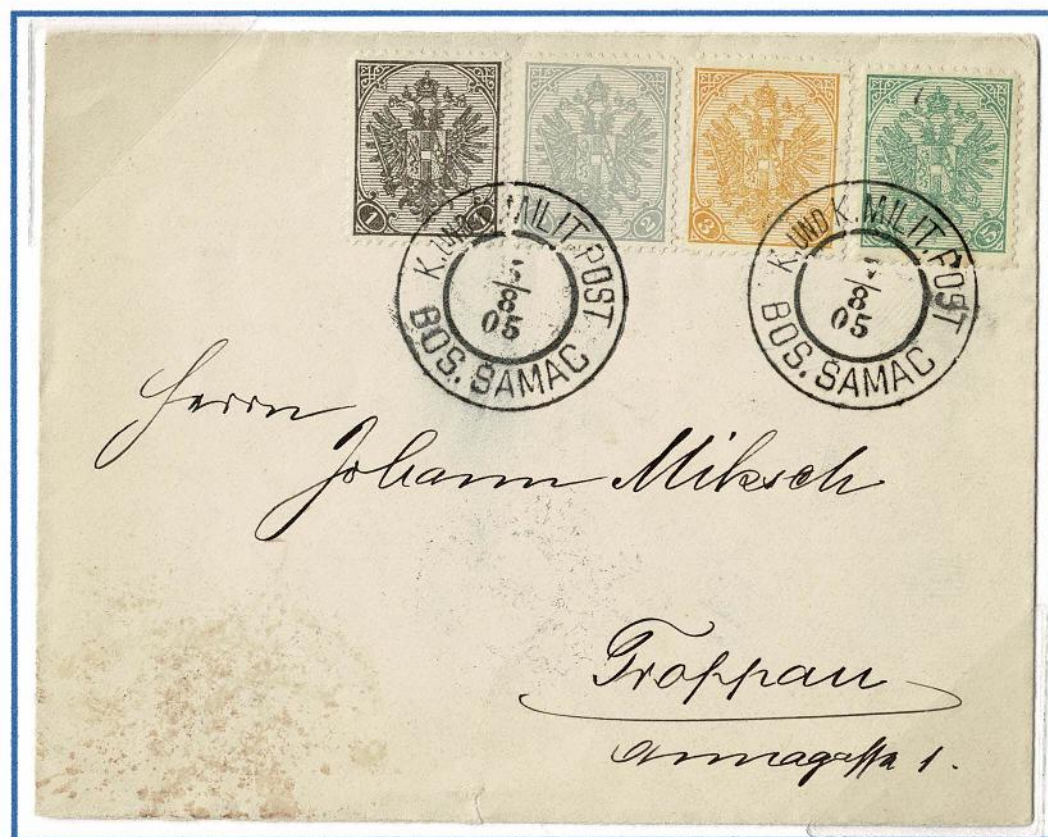 1 1
2
3
5
K. UND K. MILIT. POST
BOS. ŠAMAC
8
05
K. UND K. MILIT. POST
BOS. ŠAMAC
8
05
Herrn
Johann Miksch
Troppau
Annagasse 1.